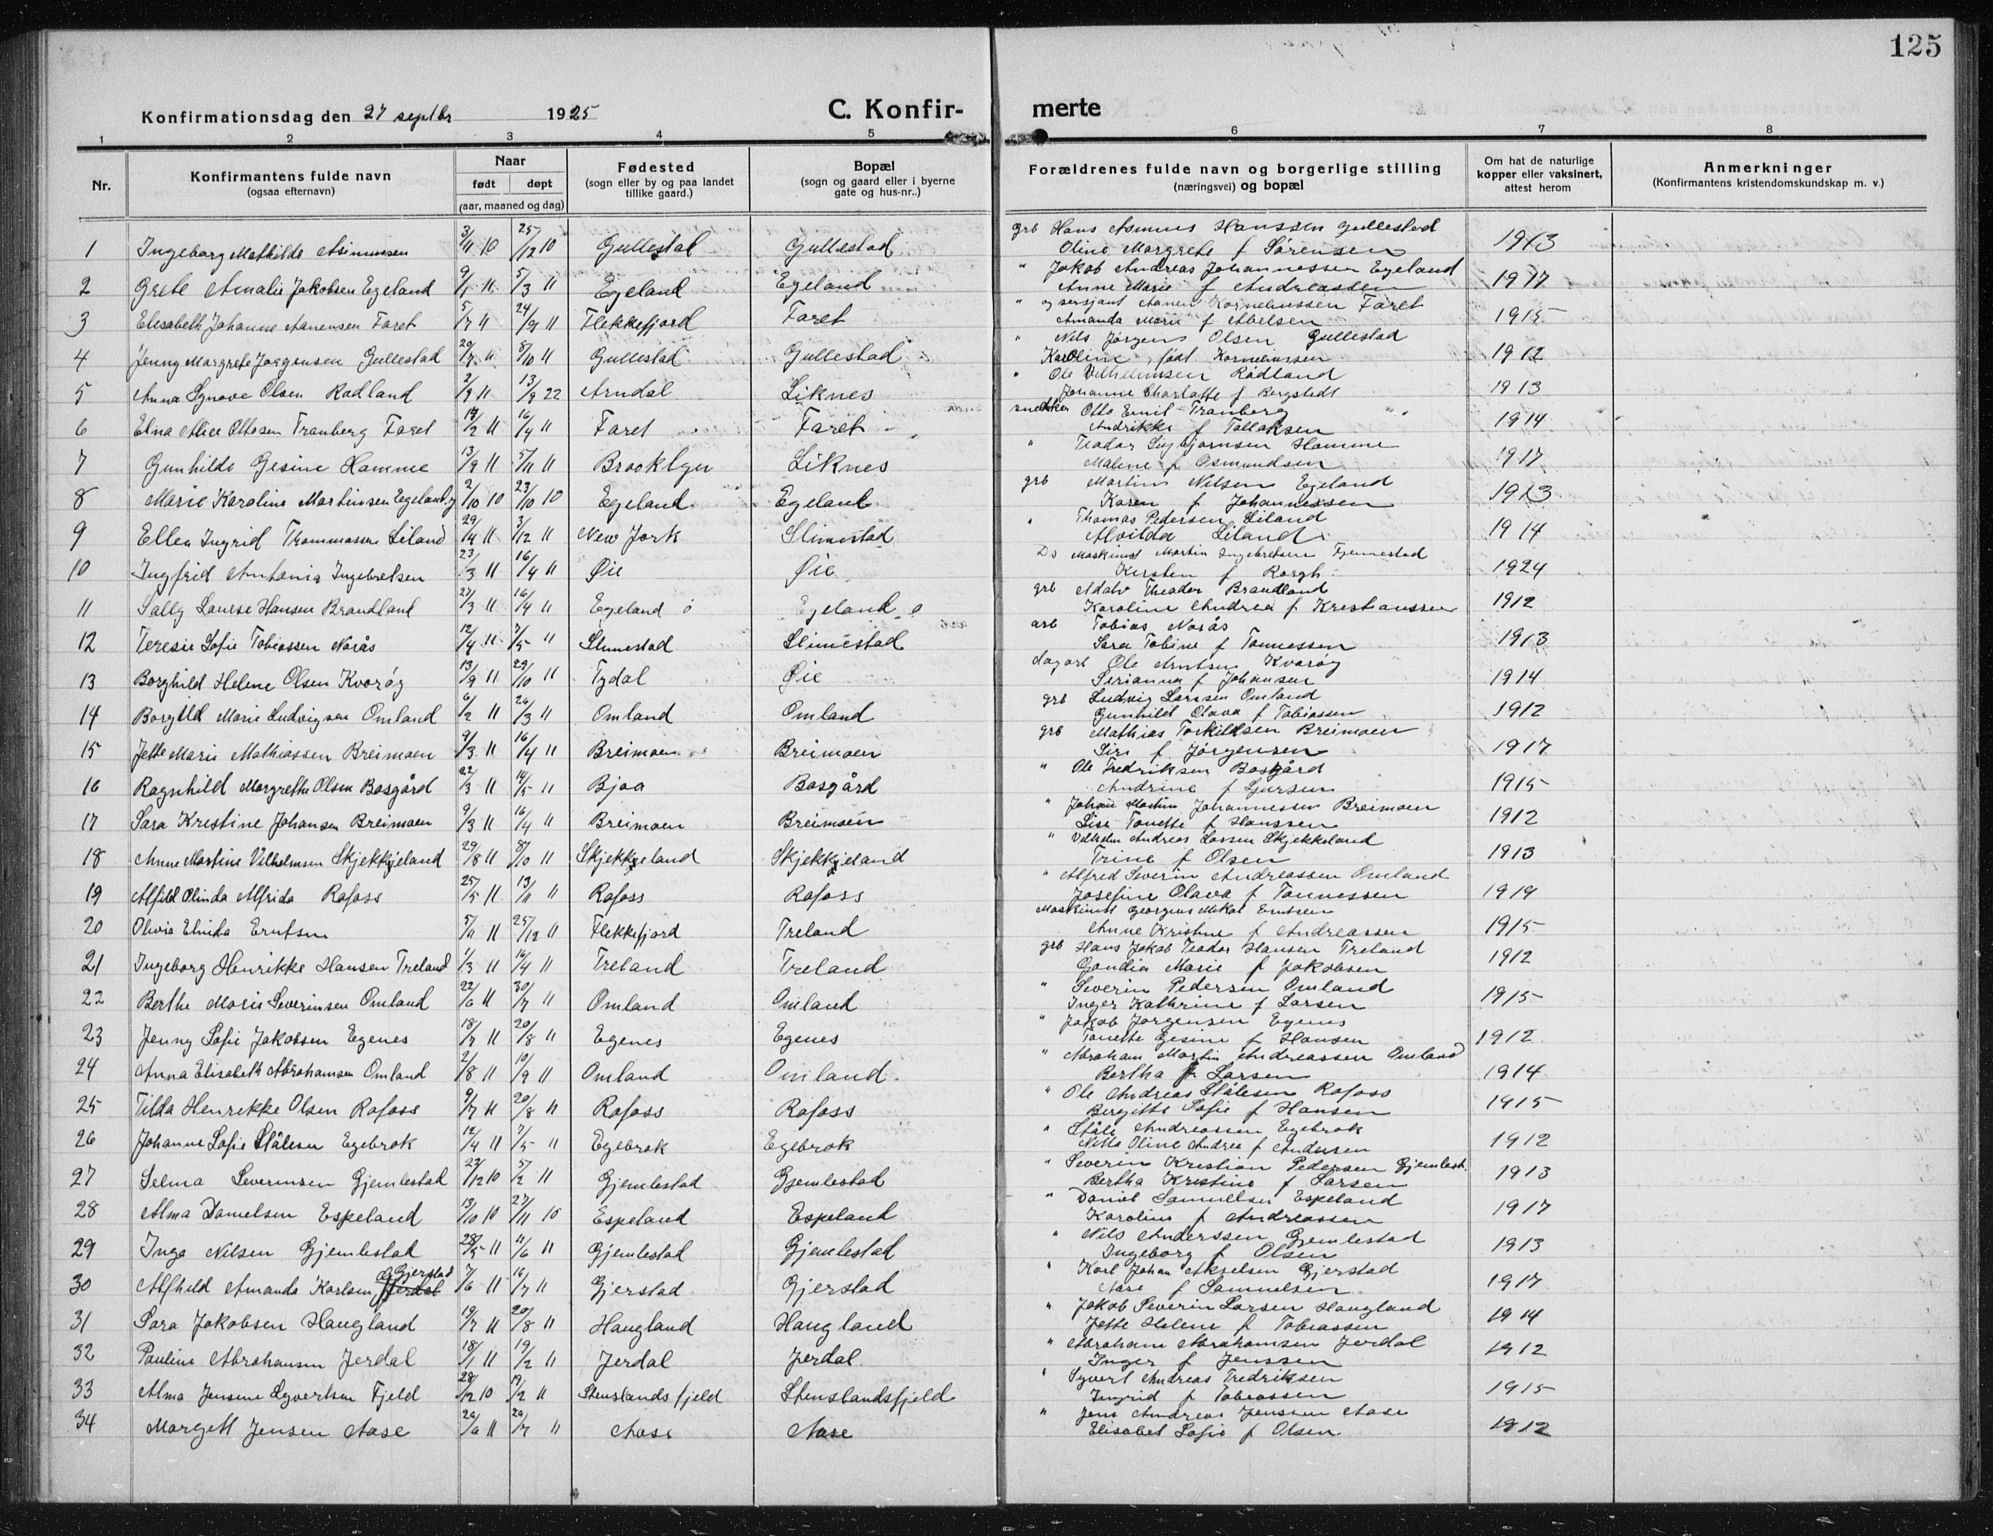 125
Konfirmationsdag den 27 septbr 1925 C. Konfir- merte
1 2 3 4 5 6 7 8
Nr. Konfirmantens fulde navn (ogsaa efternavn) Naar født døpt (aar, maaned og dag) Fødested (sogn eller by og paa landet tillike gaard.) Bopæl (sogn og gaard eller i byerne gate og hus-nr..) Forældrenes fulde navn og borgerlige stilling (næringsvei) og bopæl Om hat de naturlige kopper eller vaksinert, attest herom Anmerkninger (Konfirmantens kristendomskundskap m. v.)
1 Ingeborg Mathilde Asmunsen 3/11 10 25/12 10 Gullestad Gullestad grb Hans Asmus Hanssen Gullestad 1913
Oline Margrete f Sørensen
2 Grete Amalie Jakobsen Egeland 9/1 11 5/3 11 Egeland Egeland " Jakob Andreas Johannessen Egeland 1917
Anne Marie f Andreassen
3 Elisabeth Johanne Aanensen Faret 5/7 11 24/9 11 Flekkefjord Faret " og sersjant Aanen Korneliussen Faret 1915
Amanda Marie f Abelsen
4 Jenny Margrete Jørgensen Gullestad 29/7 11 8/10 11 Gullestad Gullestad " Nils Jørgens Olsen Gullestad 1912
Karoline født Korneliussen
5 Anna Synøve Olsen Rødland 2/9 11 13/9 22 Arndal Liknes " Ole Vilhelmsen Rødland 1913
Johanne Charlotte f Bergstedt
6 Elna Alice Ottosen Tranberg Faret 19/2 11 16/4 11 Faret Faret snekker Otto Emil Tranberg 1914
Andrikke f Tollaksen
7 Gunhilde Gesine Hamme 13/9 11 5/11 11 Brooklyn Liknes " Teodor Sigbjørnsen Hamme 1917
Malene f Osmundsen
8 Marie Karoline Martinsen Egeland 2/10 10 23/10 10 Egeland Egeland grb Martin Nilsen Egeland 1913
Karen f Johannessen
9 Ellen Ingrid Thommassen Liland 29/9 11 3/12 11 New Jork Slimestad " Thomas Pedersen Liland 1914
Alvilda Liland
10 Ingfrid Antonia Ingebretsen 23/3 11 16/4 11 Øie Øie Ds Maskinist Martin Ingebretsen Gjemlestad 1924
Kirsten f Rørgh
11 Sally Lourse Hansen Brandland 27/3 11 16/4 11 Egeland ö Egeland ö grb Adolv Theodor Brandland 1912
Karoline Andrea f Kristianssen
12 Teresie Sofie Tobiassen Norås 12/4 11 7/5 11 Slimestad Slimestad arb Tobias Norås 1913
Sara Tobine f Tønnessen
13 Borghild Helene Olsen Kvorøg 13/9 11 29/10 11 Tydal Øie dagarb Ole Arntsen Kvorøg 1914
Serianna f Johansen
14 Borgild Marie Ludvigsen Omland 6/2 11 26/3 11 Omland Omland grb Ludvig Larssen Omland 1912
Gunhild Olava f Tobiassen
15 Jette Marie Mathiassen Breimoen 9/3 11 16/4 11 Breimoen Breimoen grb Mathias Torkildsen Breimoen 1917
Siri f Jørgensen
16 Ragnhild Margrethe Olsen Bosgård 22/3 11 14/5 11 Bjoa Bosgård " Ole Fredriksen Bosgård 1915
Andrine f Sjursen
17 Sara Kristine Johansen Breimoen 9/3 11 16/4 11 Breimoen Breimoen " Johan Martin Johannessen Breimoen 1912
Lise Tonette f Hanssen
18 Anne Martine Vilhelmsen Skjekkeland 29/8 11 8/10 11 Skjekkeland Skjekkeland " Vilhelm Andreas Lassen Skjekkeland 1913
Trine f Olsen
19 Alfild Olinda Alfrida Rafoss 25/5 11 13/11 11 Rafoss Rafoss " Alfred Severin Andreassen Omland 1919
Josefine Olava f Tønnessen
20 Olivia Elvida Erntsen 5/11 11 25/12 11 Flekkefjord Treland Maskinist Georgius Mikal Erntsen 1915
Anne Kristine f Andreassen
21 Ingeborg Henrikke Hansen Treland 1/3 11 16/4 11 Treland Treland grb Hans Jakob Teodor Hansen Treland 1912
Gondia Marie f Jakobsen
22 Berthe Marie Severinsen Omland 22/6 11 30/7 11 Omland Omland " Severin Pedersen Omland 1915
Inger Kathrine f Larsen
23 Jenny Sofie Jakobsen Egenes 18/7 11 20/8 11 Egenes Egenes " Jakob Jørgensen Egenes 1912
Tonette Gesine f Hansen
24 Anna Elisabeth Abrahamsen Omland 2/8 11 10/9 11 Omland Omland " Abraham Martin Andreassen Omland 1914
Bertha f Larsen
25 Tilda Henrikke Olsen Rafoss 9/7 11 20/8 11 Rafoss Rafoss " Ole Andreas Stålesen Rafoss 1915
Bergitte Sofie f Hansen
26 Johanne Sofie Stålesen Egebrok 12/4 11 7/5 11 Egebrok Egebrok " Ståle Andreassen Egebrok 1912
Nilla Oline Andrea f Andersen
27 Selma Severinsen Gjemlestad 27/12 10 5/2 11 Gjemlestad Gjemlestad " Severin Kristian Pedersen Gjemlest. 1913
Bertha Kristine f Larsen
28 Alma Danielsen Espeland 13/10 10 27/11 10 Espeland Espeland " Daniel Samuelsen Espeland 1917
Karoline f Andreassen
29 Inga Nilsen Gjemlestad 28/5 11 11/6 11 Gjemlestad Gjemlestad " Nils Anderssen Gjemlestad 1913
Ingeborg f Olsen
30 Alfhild Amanda Karlsen Gjerstad 7/6 11 16/7 11 Gjerstad Gjerstad " Karl Johan Akselsen Gjerstad 1917
Aase f Samuelsen
31 Sara Jakobsen Haugland 19/7 11 20/8 11 Haugland Haugland " Jakob Severin Larsen Haugland 1914
Jette Helene f Tobiassen
32 Pauline Abrahamsen Jerdal 18/1 11 19/2 11 Jerdal Jerdal " Abraham Abrahamsen Jerdal 1912
Inger f Jenssen
33 Alma Jensine Syvertsen Fjeld 28/12 10 19/2 11 Stenslandsfjeld Stenslandsfjeld " Syvert Andreas Fredriksen 1915
Ingrid f Tobiassen
34 Margett Jensen Aase 20/6 11 20/7 11 Aase Aase " Jens Andreas Jenssen Aase 1912
Elisabet Sofie f Olsen